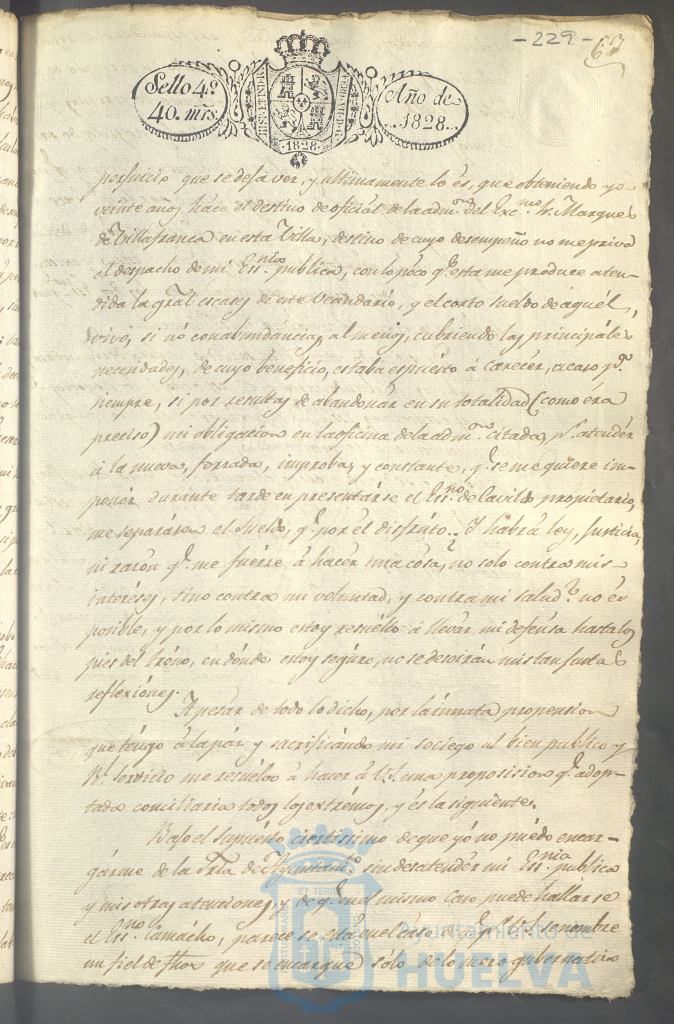 - 229 -
63
Sello 4º
40. mrs.
HISP. ET IND. R
1828
Año de
1828.
perjuicio que se deja ver, y ultimamente lo és, que obteniendo yo
veinte años hace el destino de oficial de la adm.on del Exc.mo Sr. Marques
de Villafranca en esta Villa, destino de cuyo desempeño no me priva
el despacho de mi Ess.nia publica, con lo póco q.e esta me produce aten-
dida la gral escases de este Vecindario, y el corto sueldo de aquél,
vivo, si nó con abundancia, al menos, cubriendo las principales
necesidades, de cuyo beneficio, estaba espuésto á carecér, acaso p.a
siempre, si por resultas de abandonár en su totalidad (como éra
preciso) mi obligacion en la oficina de la adm.on citada, p.a atendér
á la nueva, forzada, improba, y constante, q.e se me quiere im-
ponér durante tarde en presentárse el Ess.no de Cavildo propietario,
me separásen el sueldo, q.e por él disfrúto. Y habrá ley, justicia,
ni razón q.e me fuérze á hacér una cósa, no solo contra mis
interéses, sino contra mi voluntad, y contra mi salud? no és
posible, y por lo mismo estoy resuélto á llevár mi defensa hasta los
pies del tróno, en dónde estoy segúro, no se desoirán mis tan justas
reflexiónes.
Apesár de todo lo dicho, por la innata propension
que téngo á la páz y sacrificándo mi sociego al bien publico y
R.l servicio me resuélvo á hacer á V.S. una proposicion q.e adop-
tada conciliaria todos los extrémos, y és la siguiente.
Bajo el supuésto ciertisimo de que yó no puédo encar-
gárme de la Sria de Ayuntam.to sin desatendér mi Ess.nia publica
y mis otras atenciones, y de q.e en el mismo caso puede hallarse
el Ess.no Camácho, parece se está en el caso de q.e V.S. nombre
un fiel de fhos que se encargue sólo de lo mero gubernativo
Ayuntamiento de
HUELVA